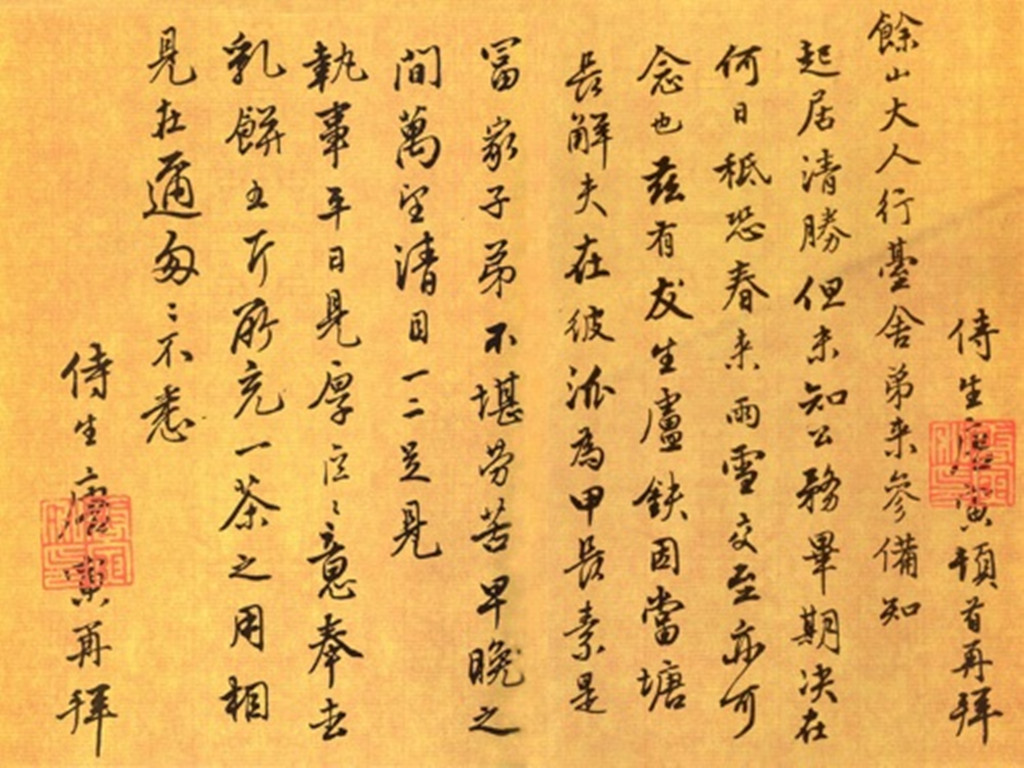 侍生唐寅頓首再拜
餘山大人行臺舍弟来參備知
起居清勝但未知公務畢期决在
何日秪恐春来雨雪交至亦可
念也茲有友生盧鈇因當塘
長解夫在彼派為甲長素是
冨家子弟不堪勞苦早晚之
間萬望清目一二足見
執事平日見厚意奉去
乳餅五斤所充一茶之用相
見在邇匆〻不悉
侍生唐寅再拜